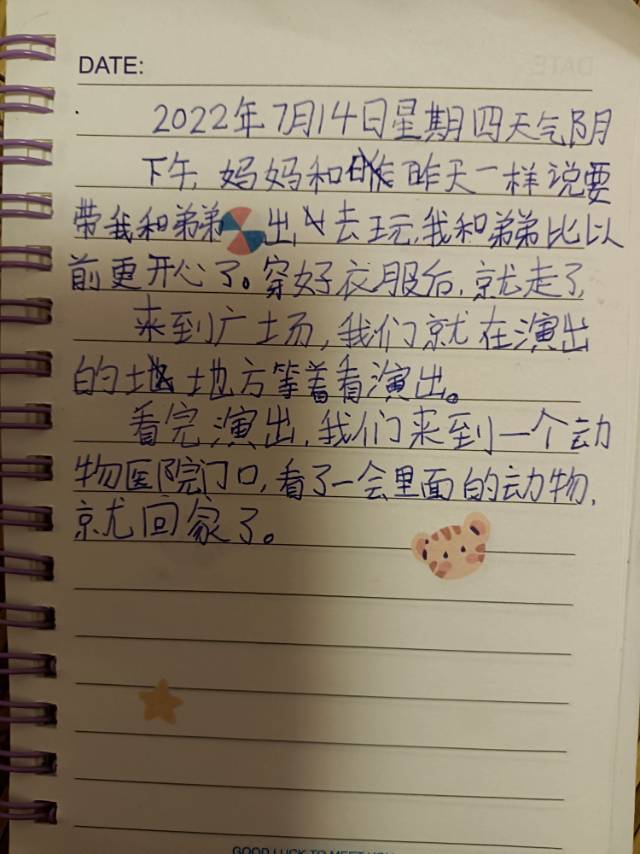 DATE:
2022年7月14日星期四天气阴
下午,妈妈和昨天一样说要
带我和弟弟出去玩,我和弟弟比以
前更开心了。穿好衣服后,就走了
来到广场,我们就在演出
的地方等着看演出。
看完演出,我们来到一个动
物医院门口,看了一会里面的动物,
就回家了。